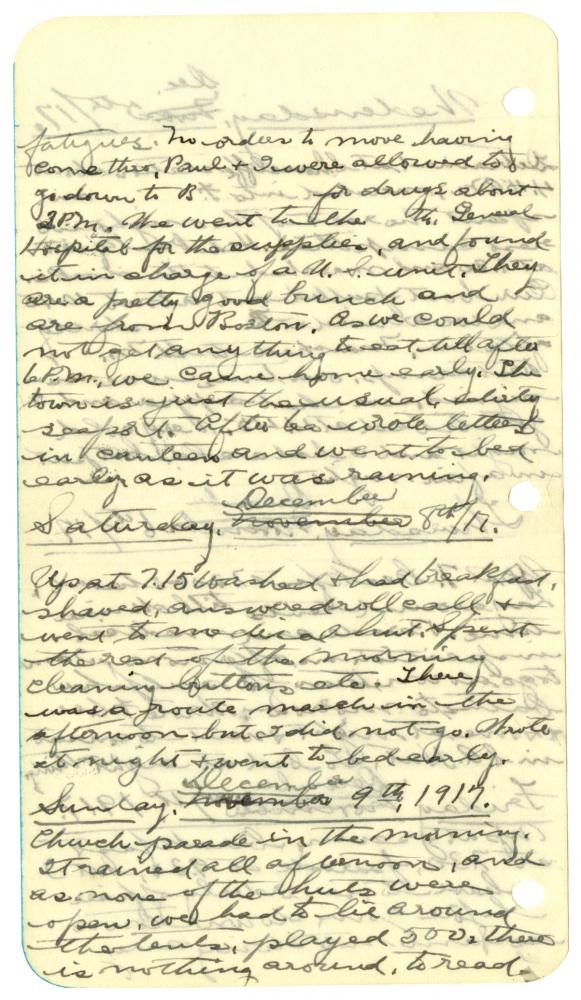 fatigues. No orders to move having
come thro, Paul & I were allowed to
go down to B for drugs about
2 P.M. We went to the th. General
Hospital for the supplies, and found
it in charge of a U.S. unit. They
are a pretty good bunch and
are from Boston. As we could
not get anything to eat till after
6 P.M., we came home early. The
town is just the usual dirty
seaport. After tea wrote letters
in canteen and went to bed
early as it was raining.
December
Saturday. November 8th/17.
Up at 7.15 washed & had breakfast,
shaved, answered roll call &
went to medical hut. Spent
the rest of the morning
cleaning buttons etc. There
was a route march in the
afternoon but I did not go. Wrote
at night & went to bed early.
December
Sunday. November 9th, 1917.
Church parade in the morning.
It rained all afternoon, and
as none of the huts were
open, we had to lie around
the tents, played 500, there
is nothing around, to read.